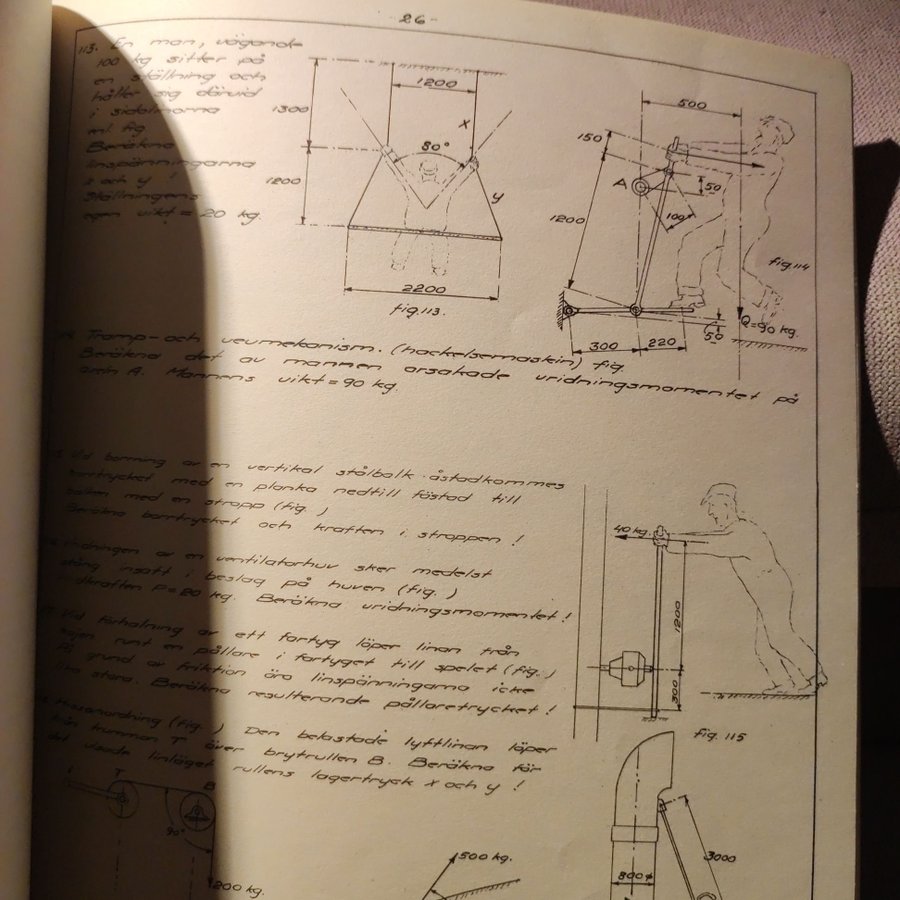 -26-
113. En man, vägande
100 kg sitter på
en ställning och
håller sig därvid
i sidolinorna
enl. fig
Beräkna
linspänningarna
x och y !
Ställningens
egen vikt = 20 kg.
1200
1300
x
80°
1200
y
2200
fig.113.
500
150
A
50
100
1200
fig.114
Q=90 kg.
50
300
220
Tramp- och vevmekanism. (hackelsemaskin) fig.
Beräkna det av mannen orsakade vridningsmomentet på
axeln A. Mannens vikt = 90 kg.
Vid borrning av en vertikal stålbalk åstadkommes
borrtrycket med en planka nedtill fästad till
balken med en stropp (fig. )
Beräkna borrtrycket och kraften i stroppen !
40 kg.
1200
300
fig. 115
Vridningen av en ventilatorhuv sker medelst
stång insatt i beslag på huven (fig. )
Vridkraften P=20 kg. Beräkna vridningsmomentet !
Vid förhalning av ett fartyg löper linan från
kajen runt en pållare i fartyget till spelet (fig. )
På grund av friktion äro linspänningarna icke
lika stora. Beräkna resulterande pållaretrycket !
Hissanordning (fig. ) Den belastade lyftlinan löper
från trumman T över brytrullen B. Beräkna för
det visade linläget rullens lagertryck x och y !
T
B
90°
200 kg.
500 kg.
800 ø
3000